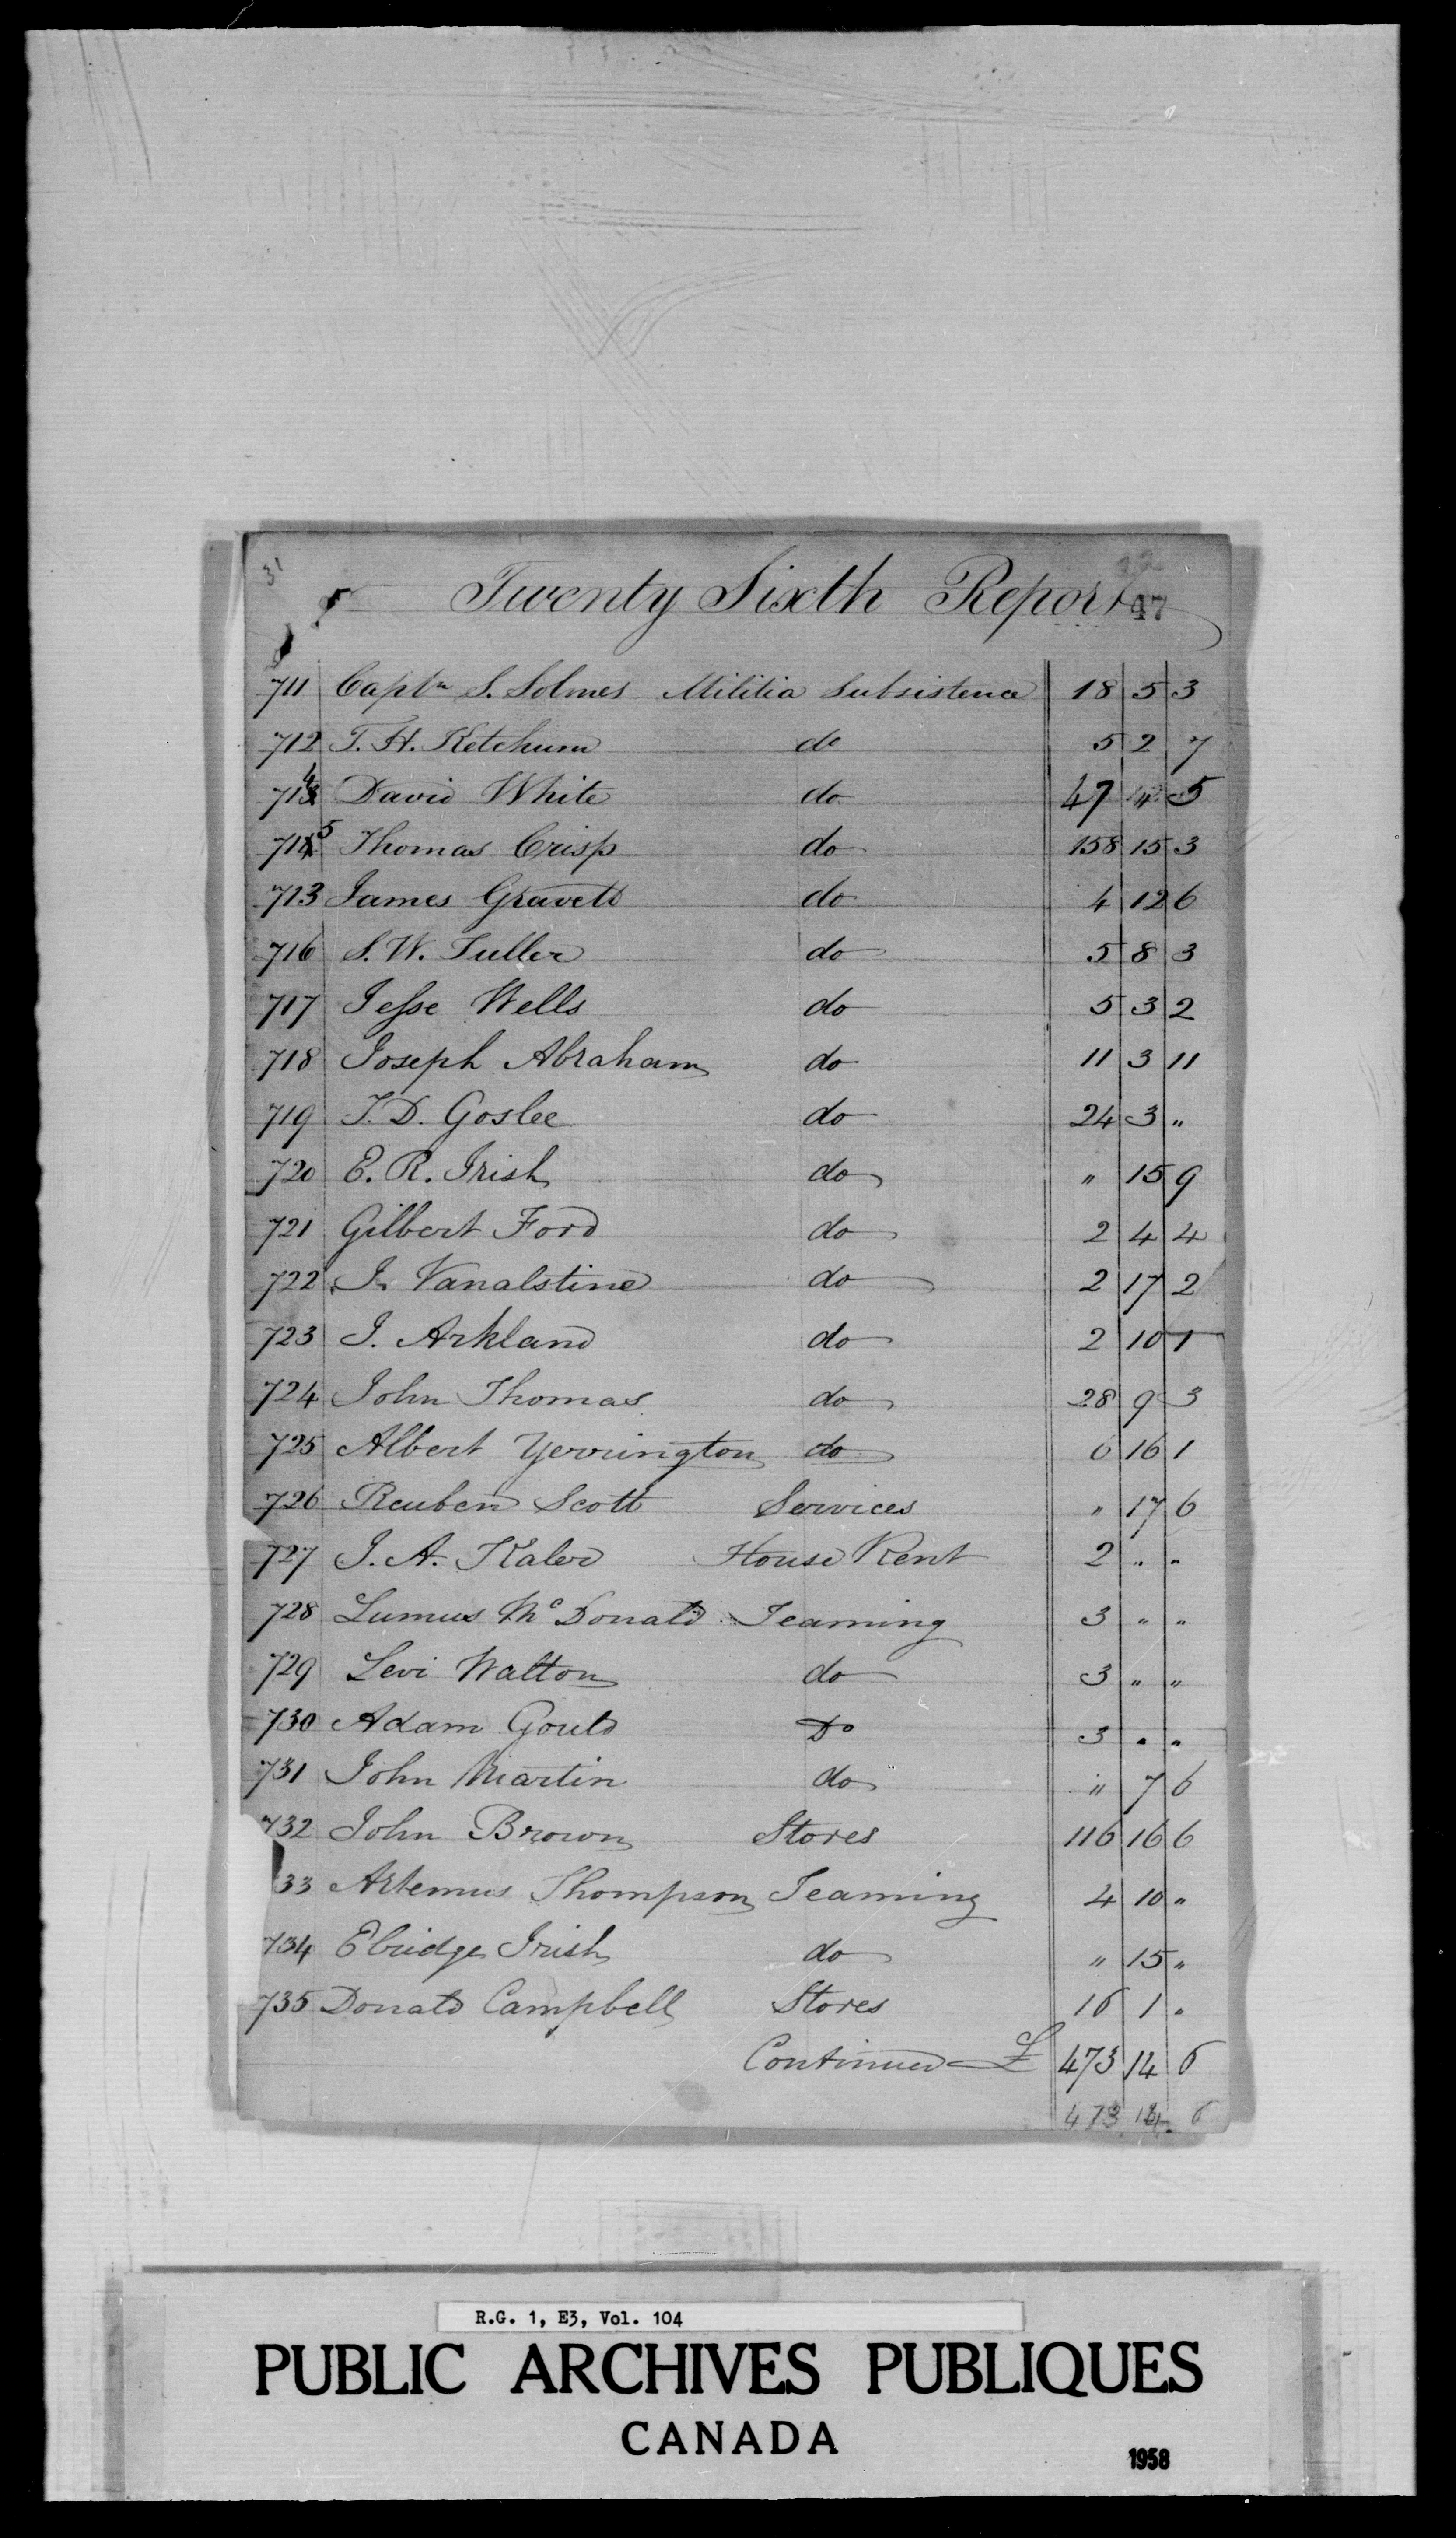 31
22
Twenty Sixth Report 47
711 Captn S. Solmes Militia Subsistence 18 5 3
712 T. H. Ketchum do 5 2 7
714 David White do 47 " 5
715 Thomas Crisp do 158 15 3
713 James Gravett do 4 12 6
716 S. W. Fuller do 5 8 3
717 Jesse Wells do 5 3 2
718 Joseph Abraham do 11 3 11
719 T. D. Goslee do 24 3 "
720 E. R. Irish do " 15 9
721 Gilbert Ford do 2 4 4
722 J. Vanalstine do 2 17 2
723 J. Arkland do 2 10 1
724 John Thomas do 28 9 3
725 Albert Yerrington do 6 16 1
726 Reuben Scott Services " 17 6
727 J. A. Kaler House Rent 2 " "
728 Lumus McDonald Teaming 3 " "
729 Levi Walton do 3 " "
730 Adam Gould Do 3 " "
731 John Martin do " 7 6
732 John Brown Stores 116 16 6
33 Artemus Thompson Teaming 4 10 "
734 Elbridge Irish do " 15 "
735 Donald Campbell Stores 16 1 "
Continued £ 473 14 6
473 14 6
R.G. 1, E3, Vol. 104
PUBLIC ARCHIVES PUBLIQUES
CANADA
1958